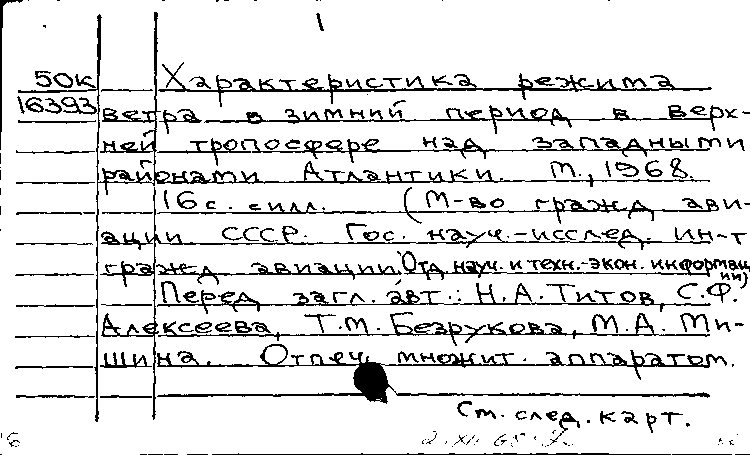 1
50к Характеристика режима
16393 ветра в зимний период в верх-
ней тропосфере над западными
районами Атлантики. М., 1968.
16 с. с илл. (М-во гражд ави-
ации СССР. Гос. науч.-исслед. ин-т
гражд авиации. Отд. науч. и техн.-экон. информац
ии)
Перед загл. авт.: Н.А. Титов, С.Ф.
Алексеева, Т.М. Безрукова, М.А. Ми-
шина. Отпеч. множит. аппаратом.
См. след. карт.